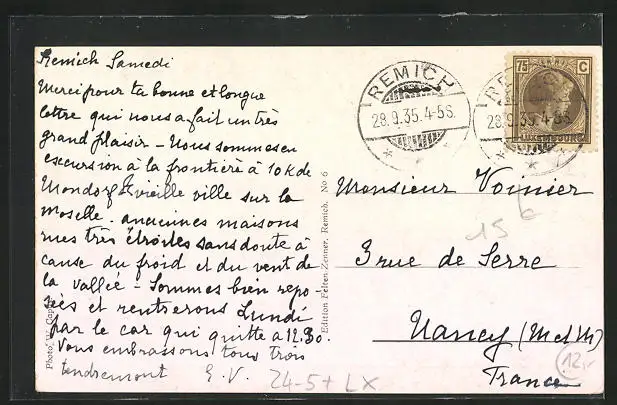 Remich Samedi
Merci pour ta bonne et longue
lettre qui nous a fait un très
grand plaisir – Nous sommes en
excursion à la frontière à 10 K de
Mondorf vieille ville sur la
Moselle. anciennes maisons
rues très étroites sans doute à
cause du froid et du vent de
la vallée – Sommes bien repo-
sées et rentrerons Lundi
par le car qui quitte à 12.30.
Vous embrassons tous trois
tendrement E.V.
24-5+ LX
Photo. W. Capi
Edition Felten-Zenner, Remich. No 6
REMICH
28.9.35. 4-5S
REMICH
28.9.35. 4-5S
75 C
LUXEMBOURG
Monsieur Voinier
15
6
3 rue de Serre
Nancy (M et M)
France
12,-